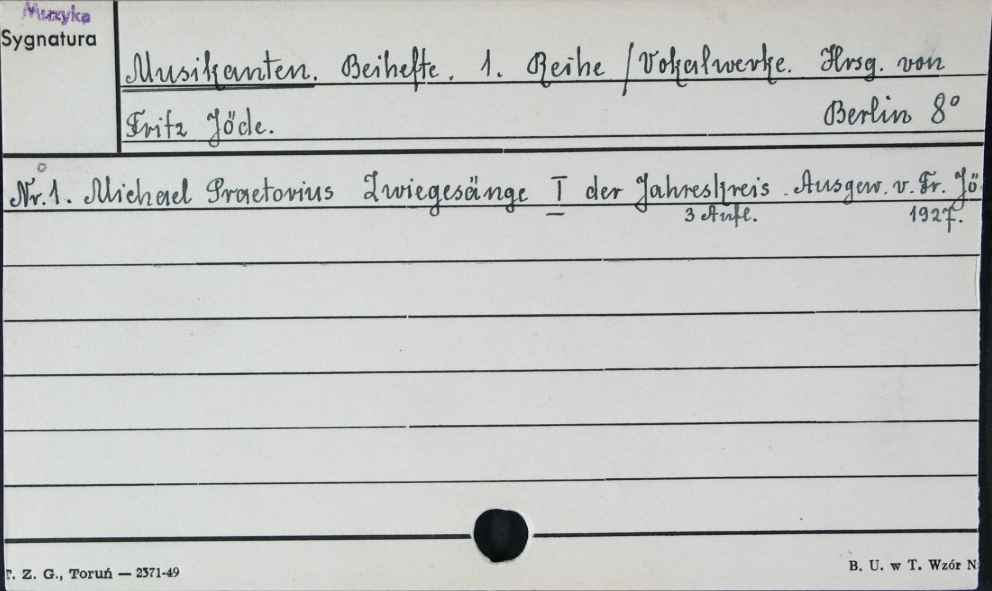 Muzyka
Sygnatura
Musikanten. Beihefte. 1. Reihe / Vokalwerke. Hrsg. von
Fritz Jöde. Berlin 8°
Nr. 1. Michael Praetorius Zwiegesänge I der Jahreskreis. Ausgew. v. Fr. Jö
3 Aufl. 1927.
. Z. G., Toruń — 2371-49
B. U. w T. Wzór N